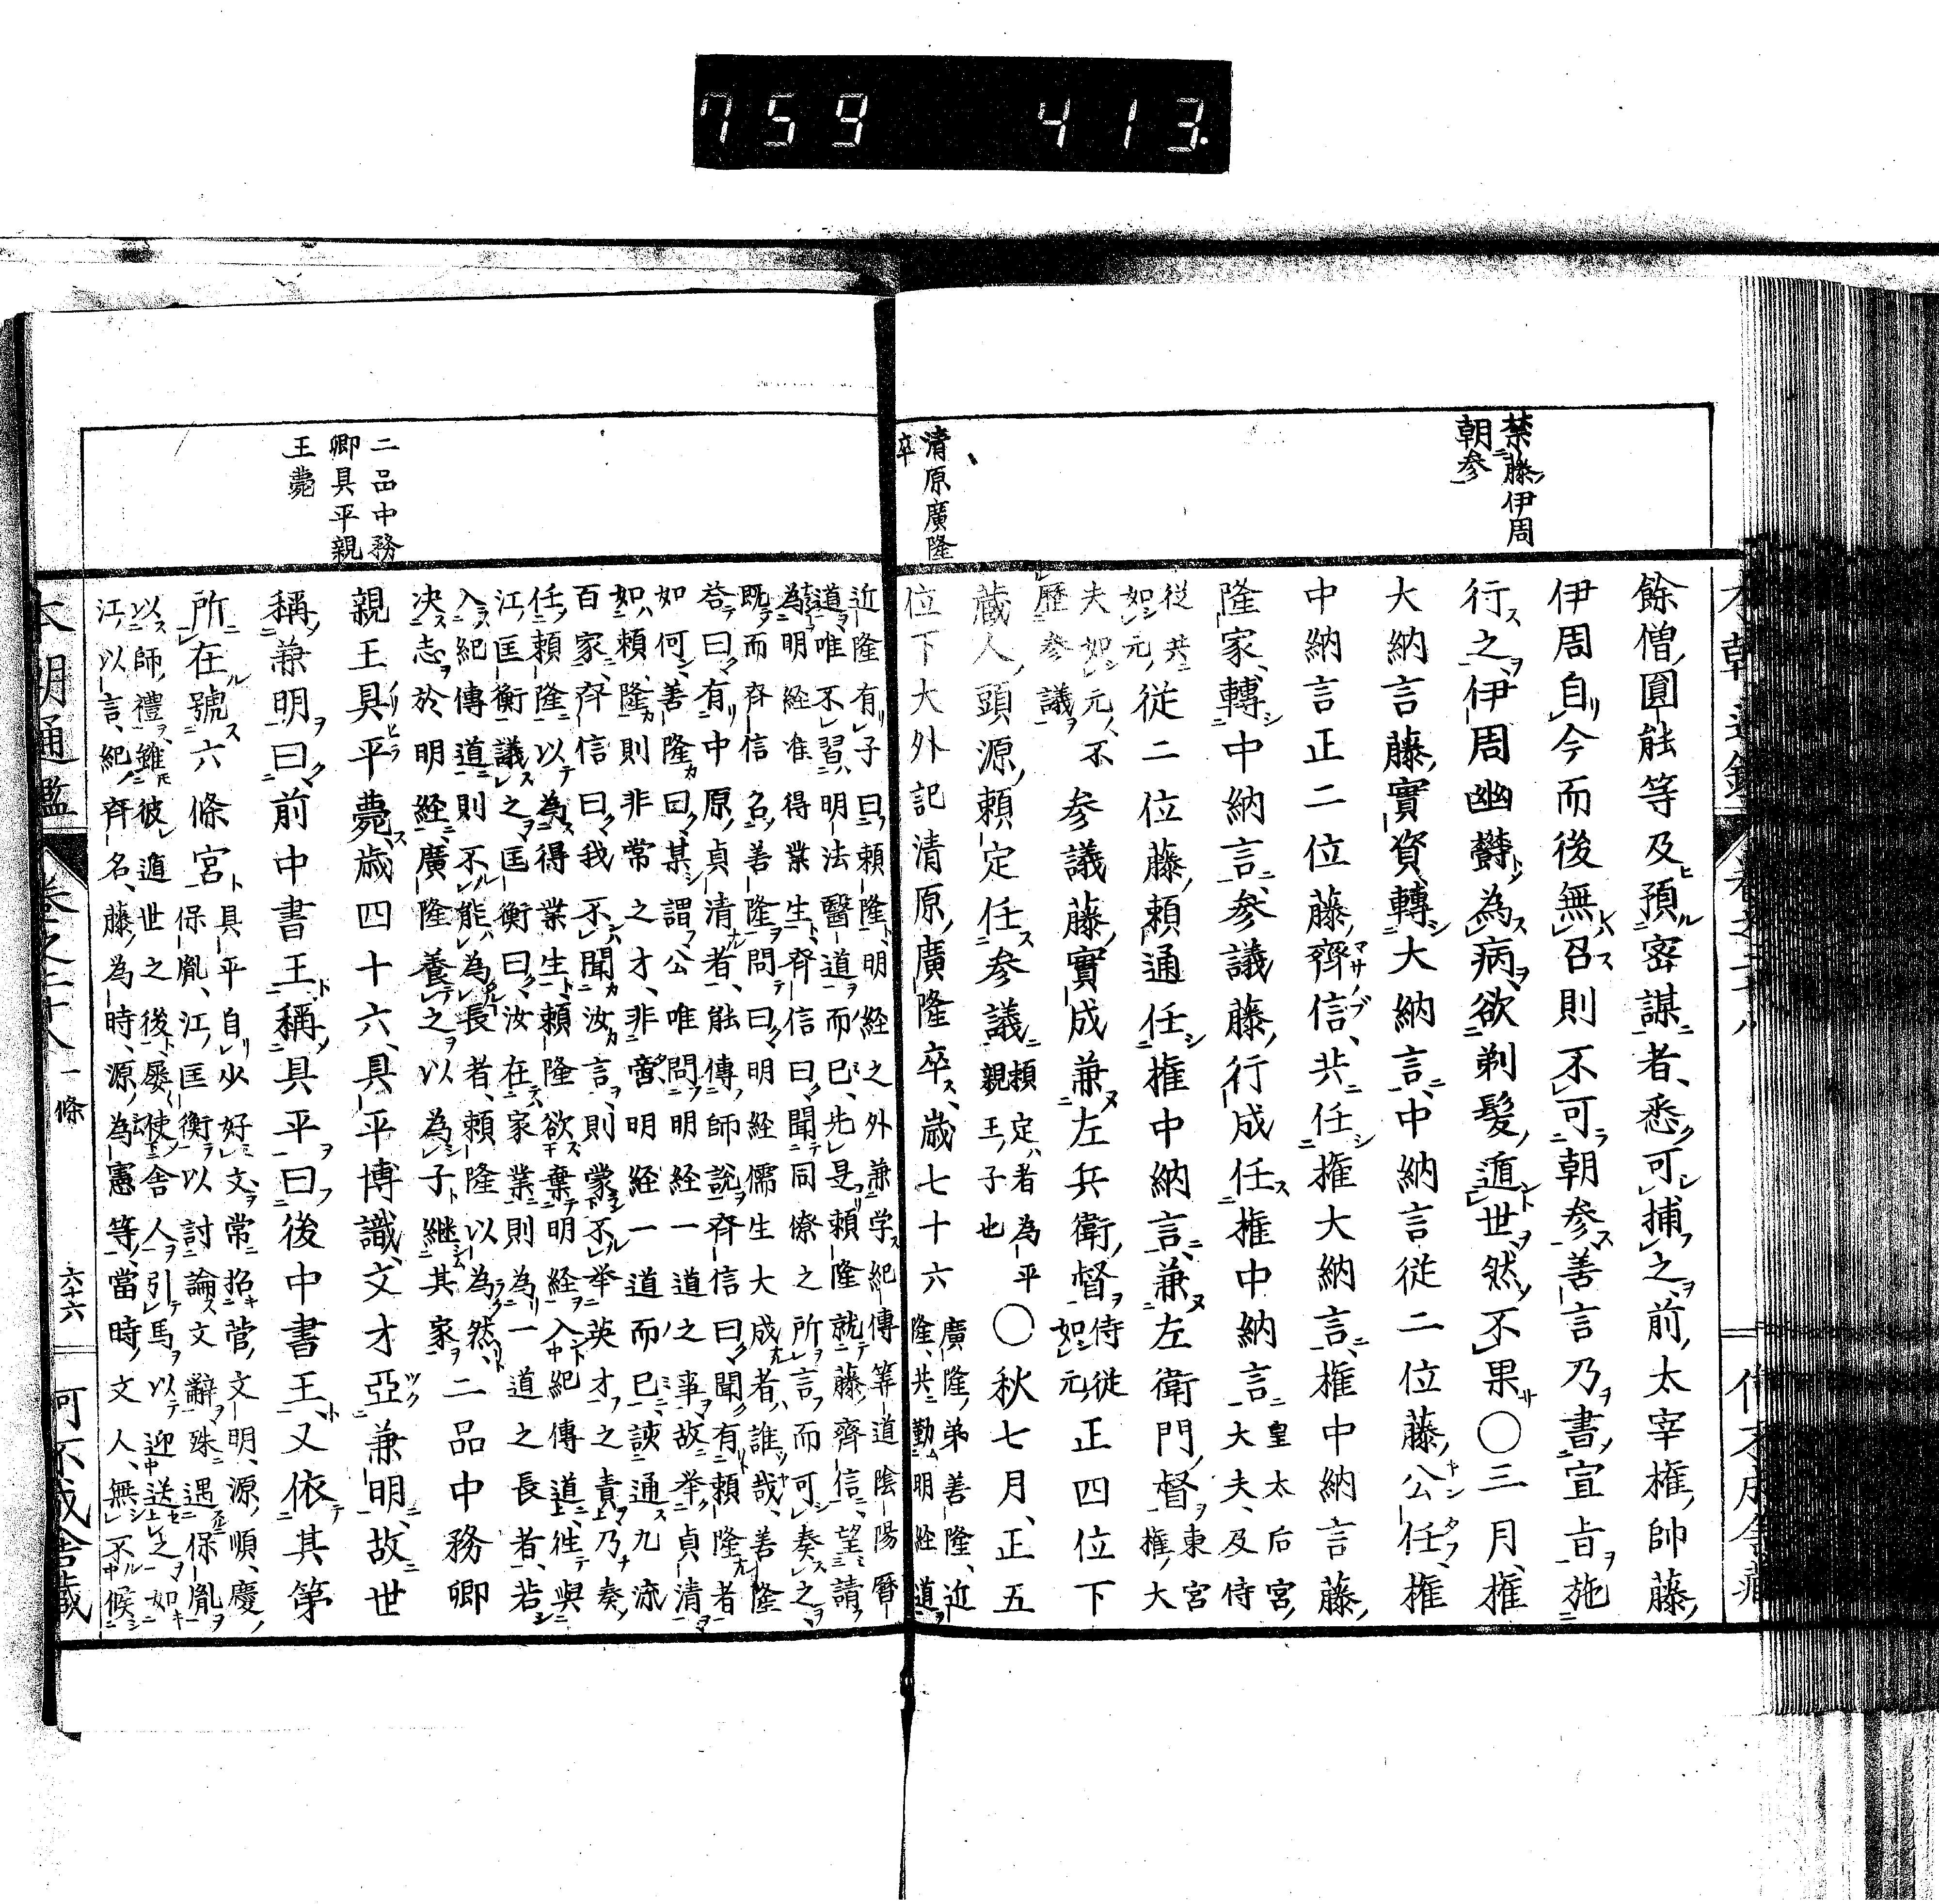 759 413.
禁藤伊周
朝参
清原廣隆
卒
餘僧圓能等及預密謀者悉可捕之前太宰権帥藤
伊周自今而後無召則不可朝参善言乃書宣旨施
行之伊周幽欝為病欲剃髮遁世然不果〇三月権
大納言藤實資轉大納言中納言従二位藤公任権
中納言正二位藤齊信共任権大納言権中納言藤
隆家轉中納言参議藤行成任権中納言皇太后宮
大夫及侍
従共
如元従二位藤頼通任権中納言兼左衛門督東宮
権大
夫如元不
歴参議参議藤實成兼左兵衛督侍従
如元正四位下
蔵人頭源頼定任参議頼定者為平
親王子也〇秋七月正五
位下大外記清原廣隆卒歳七十六廣隆弟善隆近
隆共勤明経道
近隆有子曰頼隆明経之外兼学紀傳筭道陰陽暦
道唯不習明法醫道而已先是頼隆就藤齊信望請
為明経准得業生齊信曰聞同僚之所言而可奏之
既而齊信召善隆問曰明経儒生大成者誰哉善隆
荅曰有中原貞清者能傳師説齊信曰聞有頼隆者
如何善隆曰某謂公唯問明経一道之事故挙貞清
如頼隆則非常之才非啻明経一道而已諛通九流
百家齊信曰我不聞汝言則蒙不挙英才之責乃奏
任頼隆以為得業生頼隆欲棄明経入紀傳道徃與
江匡衡議之匡衡曰汝在家業則為一道之長者若
入紀傳道則不能為長者頼隆以為然
决志於明経廣隆養之以為子継其家二品中務卿
親王具平薨歳四十六具平博識文才亞兼明故世
稱兼明曰前中書王稱具平曰後中書王又依其第
所在號六條宮具平自少好文常招菅文明源順慶
保胤江匡衡以討論文辭殊遇保胤
以師禮雖彼遁世之後屡使舎人引馬以迎送之如
江以言紀齊名藤為時源為憲等當時文人無不候
二品中務
卿具平親
王薨
本朝通鑑 巻之二十八 一條 六十六 何不成舎蔵